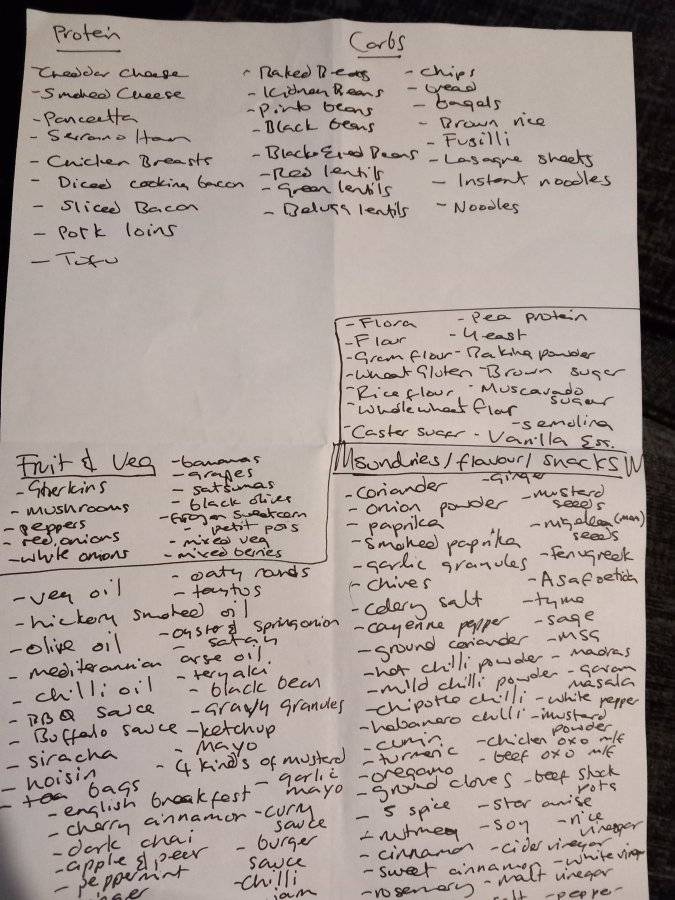 Protein
Cheddar Cheese
- Smoked Cheese
- Pancetta
- Serrano Ham
- Chicken Breasts
- Diced cooking bacon
- Sliced Bacon
- Pork loins
- Tofu
Carbs
- Baked Beans
- Kidney Beans
- Pinto beans
- Black beans
- Black Eyed Beans
- Red lentils
- Green lentils
- Beluga lentils
- chips
- bread
- bagels
- Brown rice
- Fusilli
- Lasagne sheets
- Instant noodles
- Noodles
- Flora - Pea protein
- Flour - Yeast
- Gram flour - Baking powder
- Wheat Gluten - Brown sugar
- Rice flour - Muscavado sugar
- Wholewheat flour
- semolina
- Caster sugar - Vanilla Ess.
Fruit & Veg
- Gherkins
- mushrooms
- peppers
- red onions
- white onions
- bananas
- grapes
- satsumas
- black olives
- frozen sweetcorn
- petit pois
- mixed veg
- mixed berries
- oaty rounds
- veg oil
- hickory smoked oil
- olive oil
- oyster & spring onion
- mediterranian
- chilli oil
- black bean
- BBQ sauce
- gravy granules
- Buffalo sauce - ketchup
- siracha
- mayo
- hoisin
- 4 kinds of mustard
- tea bags
- garlic mayo
- english breakfast
- cherry cinnamon - curry sauce
- dark chai
- apple & pear
- burger sauce
- peppermint
- chilli jam
sundries / flavour / snacks
- ginger
- coriander
- onion powder - mustard seeds
- paprika
- smoked paprika
seeds
- garlic granules - fenugreek
- chives - Asafoetida
- celery salt - tyme
- cayenne pepper - sage
- ground coriander - MSG
- hot chilli powder - madras
- mild chilli powder - garam masala
- chipotle chilli - white pepper
- habanero chilli - mustard powder
- cumin - chicken oxo m/f
- turmeric - beef oxo m/f
- oregano
- ground cloves - beef stock pots
- 5 spice - star anise
- nutmeg - soy - rice vinegar
- cinnamon - cider vinegar
- sweet cinnamon - white vinegar
- rosemary - malt vinegar
salt - pepper